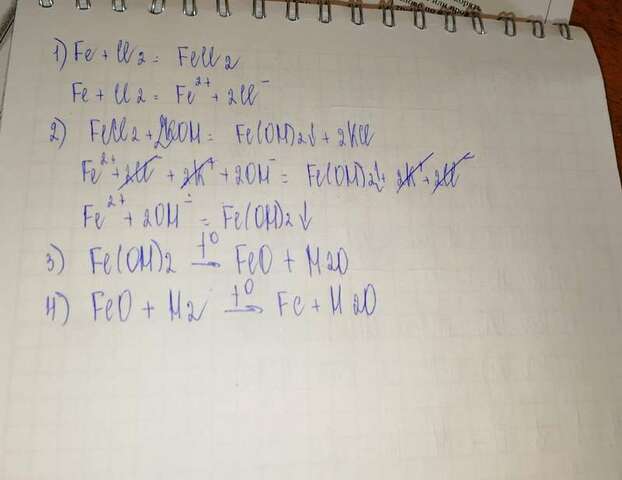 1) Fe + Cl2 = FeCl2
Fe + Cl2 = Fe²⁺ + 2Cl⁻
2) FeCl2 + 2KOH = Fe(OH)2↓ + 2KCl
Fe²⁺ + 2Cl⁻ + 2K⁺ + 2OH⁻ = Fe(OH)2↓ + 2K⁺ + 2Cl⁻
Fe²⁺ + 2OH⁻ = Fe(OH)2↓
3) Fe(OH)2 t⁰→ FeO + H2O
4) FeO + H2 t⁰→ Fe + H2O